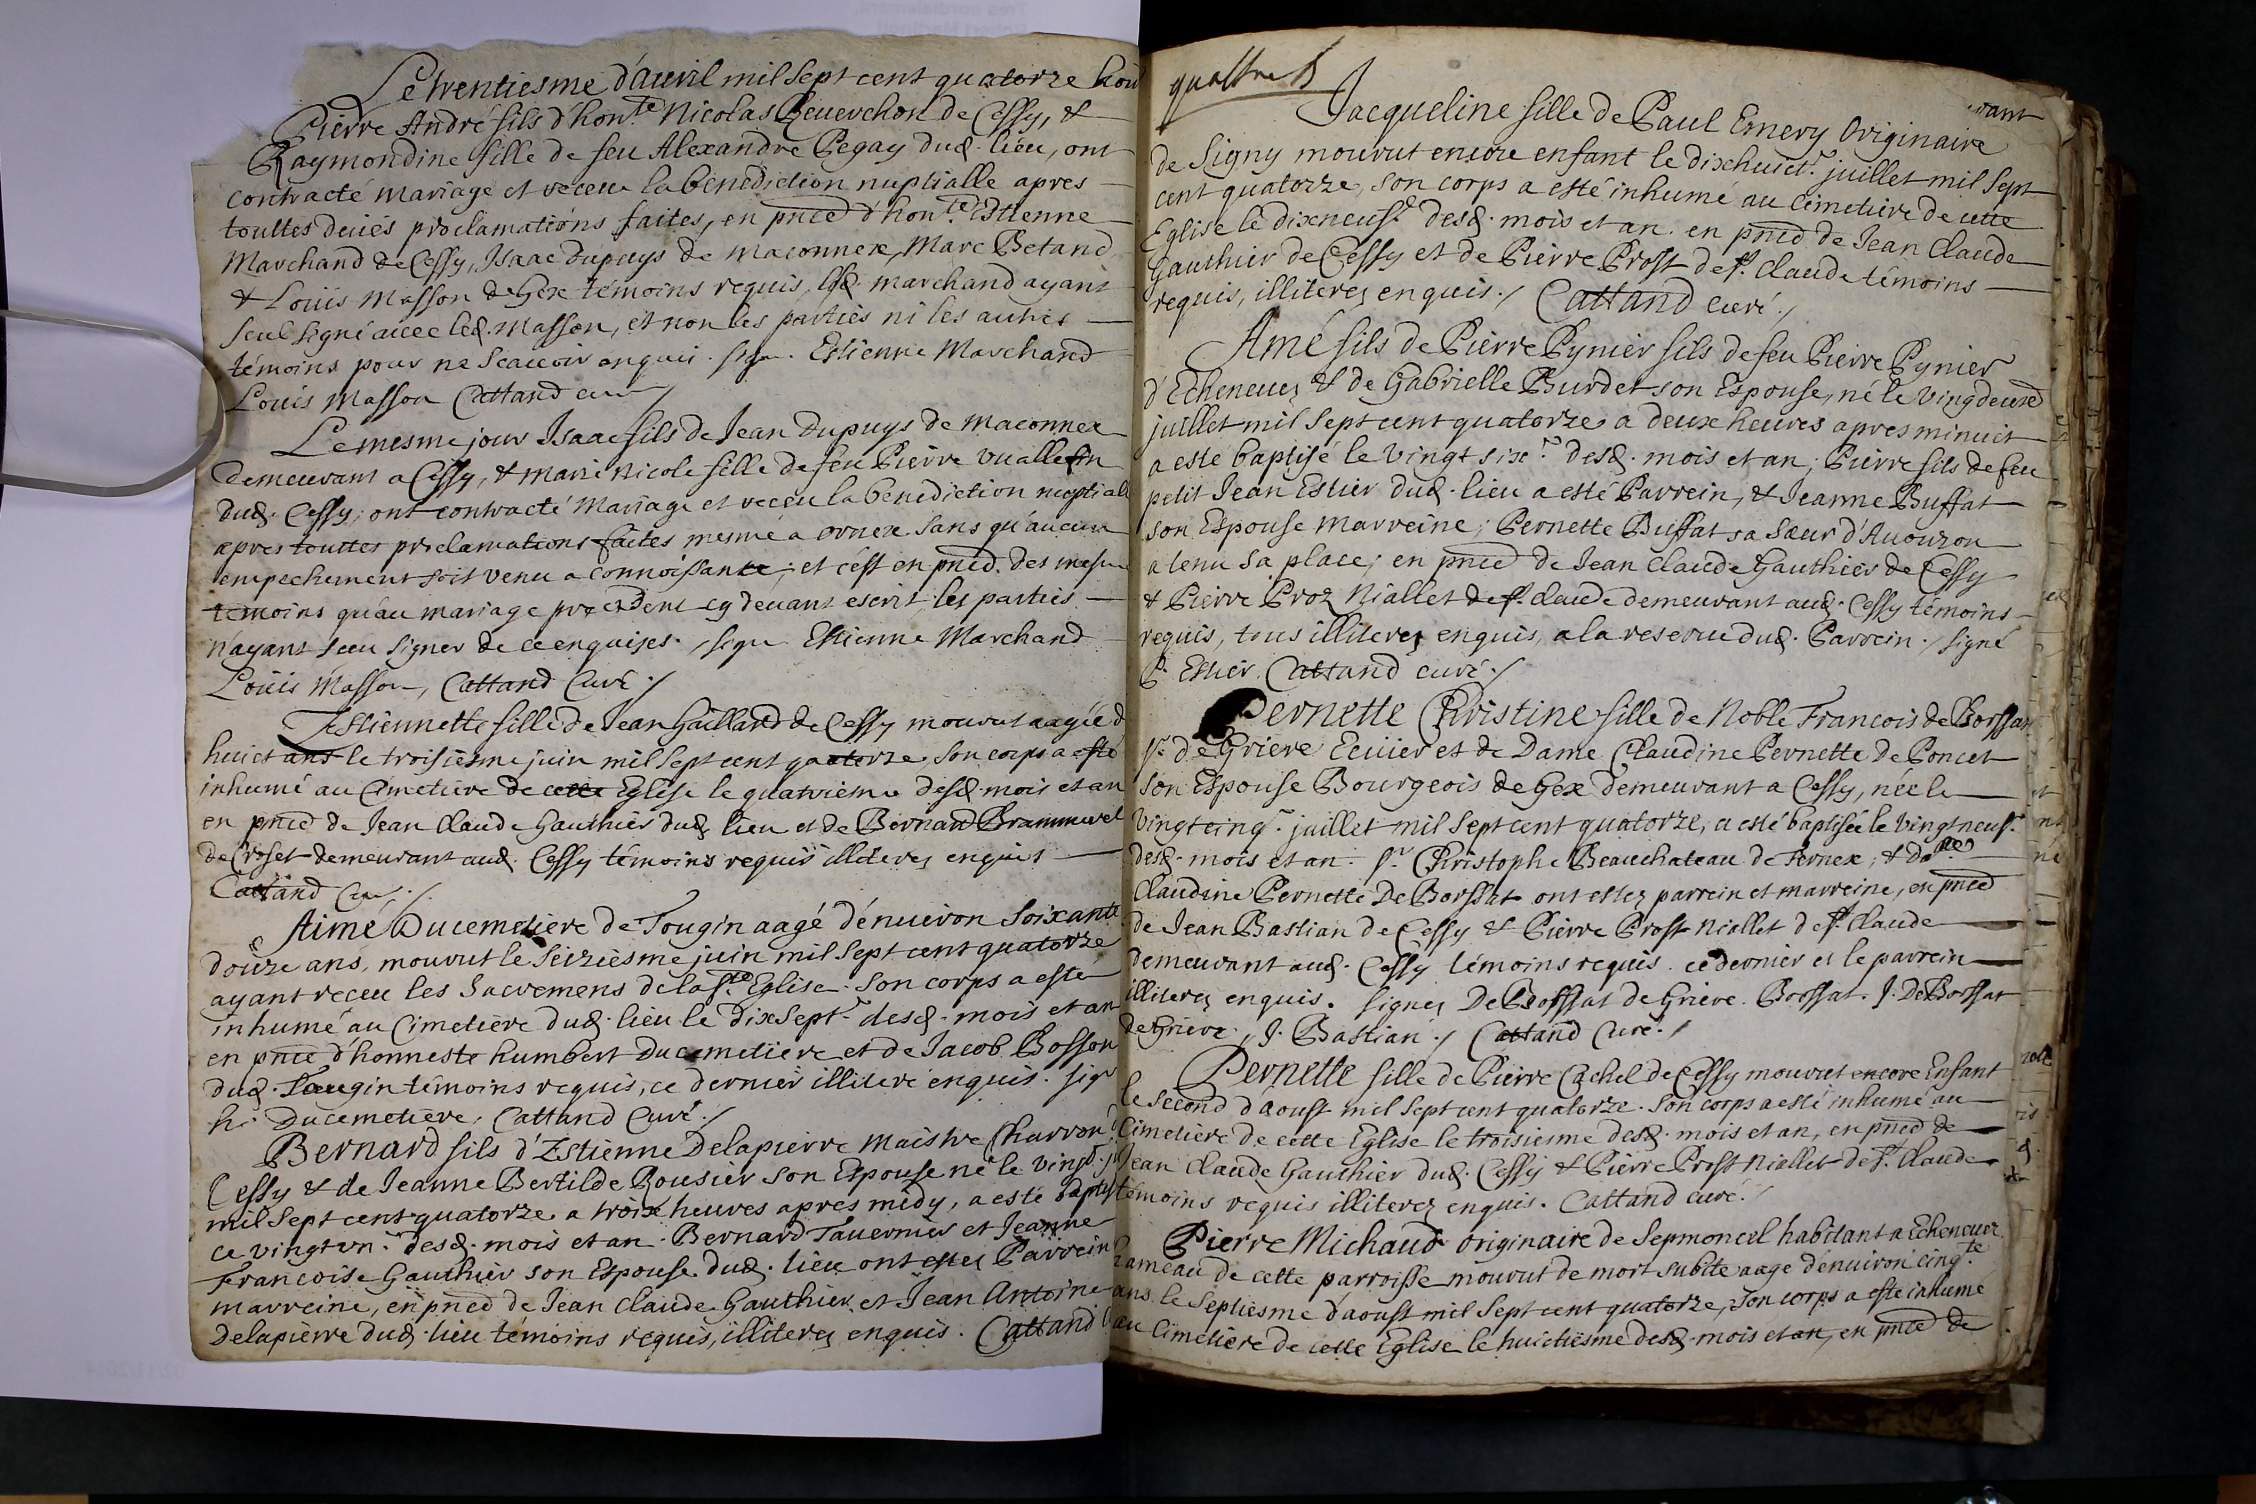 Le trentiesme d'auvril mil sept cent quatorze hon
Pierre André fils d'hon.te Nicolas Reverchon de Cessy, &
Raymondine fille de feu Alexandre Pegay dud. lieu, ont
contracté mariage et receu la benediction nuptialle apres
touttes deües proclamations faites, en pnce d'hon.te Estienne
Marchand de Cessy, Isaac Dupuys de Maconnex, Marc Betand
& Loüis Masson de Gex témoins requis, led. Marchand ayant
seul signé avec led. Masson, et non les parties ni les autres
témoins pour ne scavoir enquis. signé. Estienne Marchand
Louis Masson Cattand curé /
Le mesme jour Isaac fils de Jean Dupuys de Maconnex
demeurant a Cessy, & Marie Nicole fille de feu Pierre Vuallelin
dud. Cessy; ont contracté mariage et receu la benediction nuptiall
apres touttes proclamations faites mesme a Ornex sans qu'aucun
empechement soit venu a connoissance; et c'est en pnce. des mesme
témoins qu'au mariage precedent cy devant escrit, les parties
n'ayant sceu signer de ce enquises. signé Estienne Marchand
Loüis Masson, Cattand curé ./
Estiennette fille de Jean Gaillard de Cessy mourut aagée d
huict ans le troisiesme juin mil sept cent quatorze, son corps a esté
inhumé au Cimetiere de cette Eglise le quatriesme desd. mois et an
en pnce de Jean Claude Gauthier dud. lieu et de Bernard Brammerel
de Croset demeurant aud. Cessy témoins requis illiterez enquis
Cattand curé ./
Aimé Ducemetiere de Tougin aagé d'enuiron soixante
douze ans, mourut le seiziesme juin mil sept cent quatorze
ayant receu les Sacremens de la S.te Eglise. son corps a esté
inhumé au Cimetiere dud. lieu le dixsept.e desd. mois et an
en pnce d'honneste humbert Ducemetiere et de Jacob Bosson
dud. Tougin témoins requis, ce dernier illiteré enquis. signé
h. Ducemetiere, Cattand Curé ./
Bernard fils d'Estienne Delapierre Maistre Charron d
Cessy & de Jeanne Bertilde Rousier son Espouse né le vingt. ju
mil sept cent quatorze a trois heures apres midy, a esté baptis
ce vingt vn.e desd. mois et an. Bernard Tavernier et Jeanne
Francoise Gauthier son Espouse dud. lieu ont estez Parrein
marreine, en pnce de Jean Claude Gauthier et Jean Antoine
Delapierre dud. lieu témoins requis, illiterez enquis. Cattand
quattre
Jacqueline fille de Paul Emery Originaire
de Signy mourut encore enfant le dixhuict.e juillet mil sept
cent quatorze, son corps a esté inhumé au Cimetiere de cette
Eglise le dixneuf.e desd. mois et an en pnce de Jean Claude
Gauthier de Cessy et de Pierre Prost de S.t Claude témoins
requis, illiterez enquis ./ Cattand curé ./
Amé fils de Pierre Pynier fils de feu Pierre Pynier
d'Echenevez & de Gabrielle Burdet son Espouse, né le vingdeuxe
juillet mil sept cent quatorze a deux heures apres minuit
a esté baptisé le vingt six.e desd. mois et an; Pierre fils de feu
petit Jean Estier dud. lieu a esté Parrein, & Jeanne Buffat
son Espouse marreine; Pernette Buffat sa soeur d'Avouzon
a tenu sa place; en pnce de Jean Claude Gauthier de Cessy
& Pierre Proz Niallet de S.t Claude demeurant aud. Cessy témoins
requis, tous illiterez enquis, a la reserve dud. Parrein ./ signé
P. Estier Cattand curé ./
Pernette Christine fille de Noble Francois de Borssat
S.r de Griere Ecuier et de Dame Claudine Pernette de Poncet
son Espouse Bourgeois de Gex demeurant a Cessy, née le
vingt cinq.e juillet mil sept cent quatorze, a esté baptisée le vingt neuf.e
desd. mois et an. S.r Christophe Beauchateau de Fernex, & Da.lle
Claudine Pernette De Borssat ont estez parrein et marreine, en pnce
de Jean Bastian de Cessy & Pierre Prost Niallet de S.t Claude
demeurant aud. Cessy témoins requis. ce dernier et le parrein
illiterez enquis. signez De Borssat de Griere. Borssat. J. De Borssat
de Griere, J. Bastian ./ Cattand Curé ./
Pernette fille de Pierre Cachel de Cessy mourut encore Enfant
le second d'aoust mil sept cent quatorze. son corps a esté inhumé au
Cimetiere de cette Eglise le troisiesme desd. mois et an, en pnce de
Jean Claude Gauthier dud. Cessy & Pierre Prost Niallet de S.t Claude
témoins requis illiterez enquis. Cattand curé ./
Pierre Michaud originaire de Sepmoncel habitant a Echenevez
hameau de cette parroisse mourut de mort subite aagé d'enuiron cinq.te
ans le septiesme d'aoust mil sept cent quatorze, son corps a esté inhumé
au Cimetiere de cette Eglise le huictiesme desd. mois et an, en pnce de